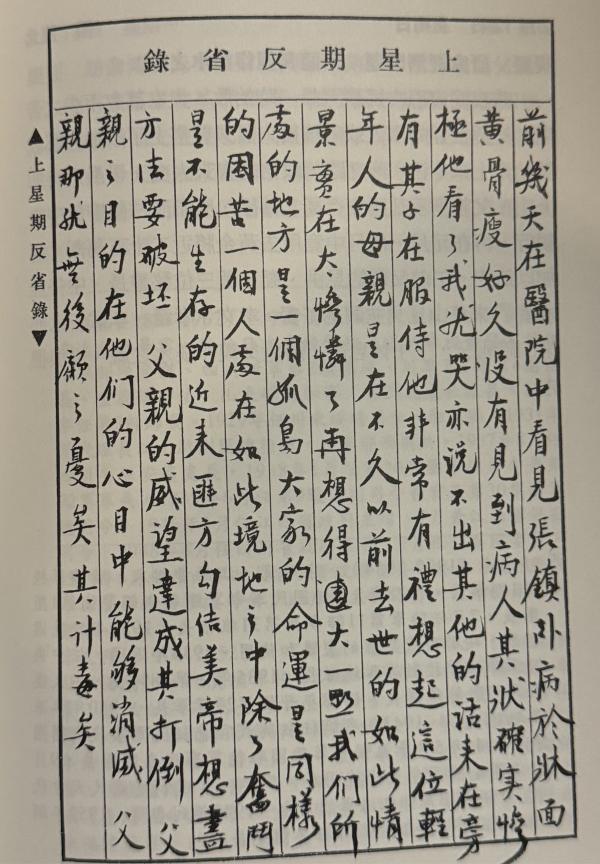 上星期反省錄
前幾天在醫院中看見張鎮卧病於牀面
黃骨瘦好久沒有見到病人其狀確實慘
極他看了我就哭亦説不出其他的話来在旁
有其子在服侍他非常有禮想起這位輕
年人的母親是在不久以前去世的如此情
景實在太慘憐了再想得遠大一點我們所
處的地方是一個孤島大家的命運是同樣
的困苦一個人處在如此境地之中除了奮鬥
是不能生存的近来匪方勾结美帝想盡
方法要破坯父親的威望達成其打倒父
親之目的在他们的心目中能够消滅父
親那就無後顧之憂矣其計毒矣
▲上星期反省錄▼